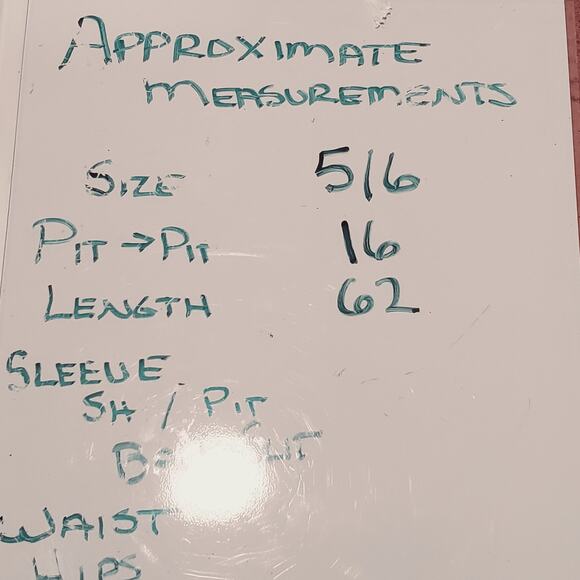 APPROXIMATE
MEASUREMENTS
SIZE 5/6
PIT → PIT 16
LENGTH 62
SLEEVE
SH / PIT
WAIST
HIPS